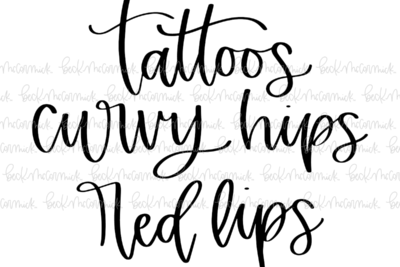 tattoos
curvy hips
red lips